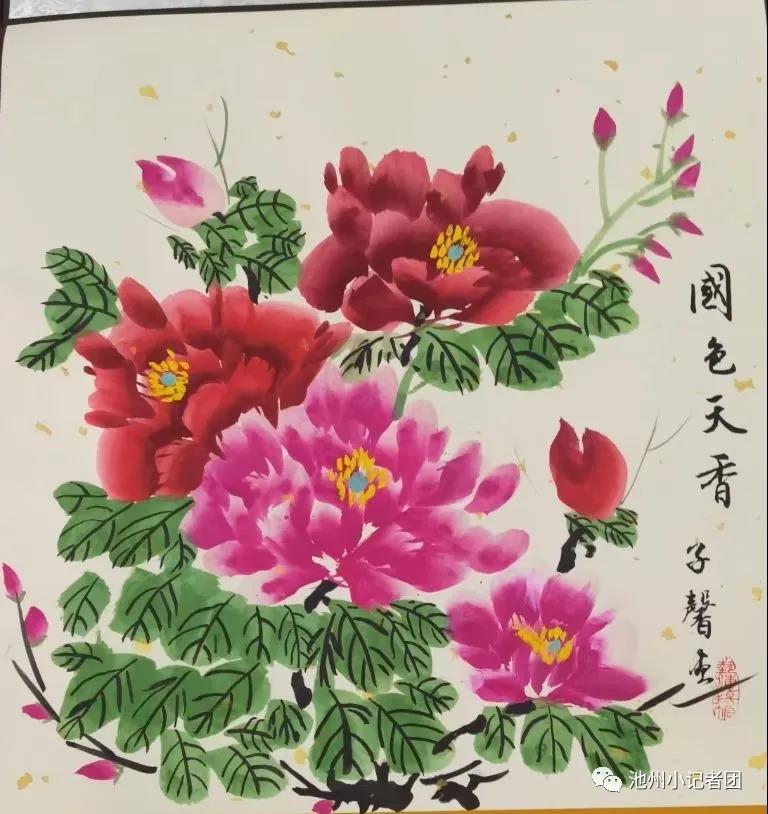 國色天香
子馨画
池州小记者团